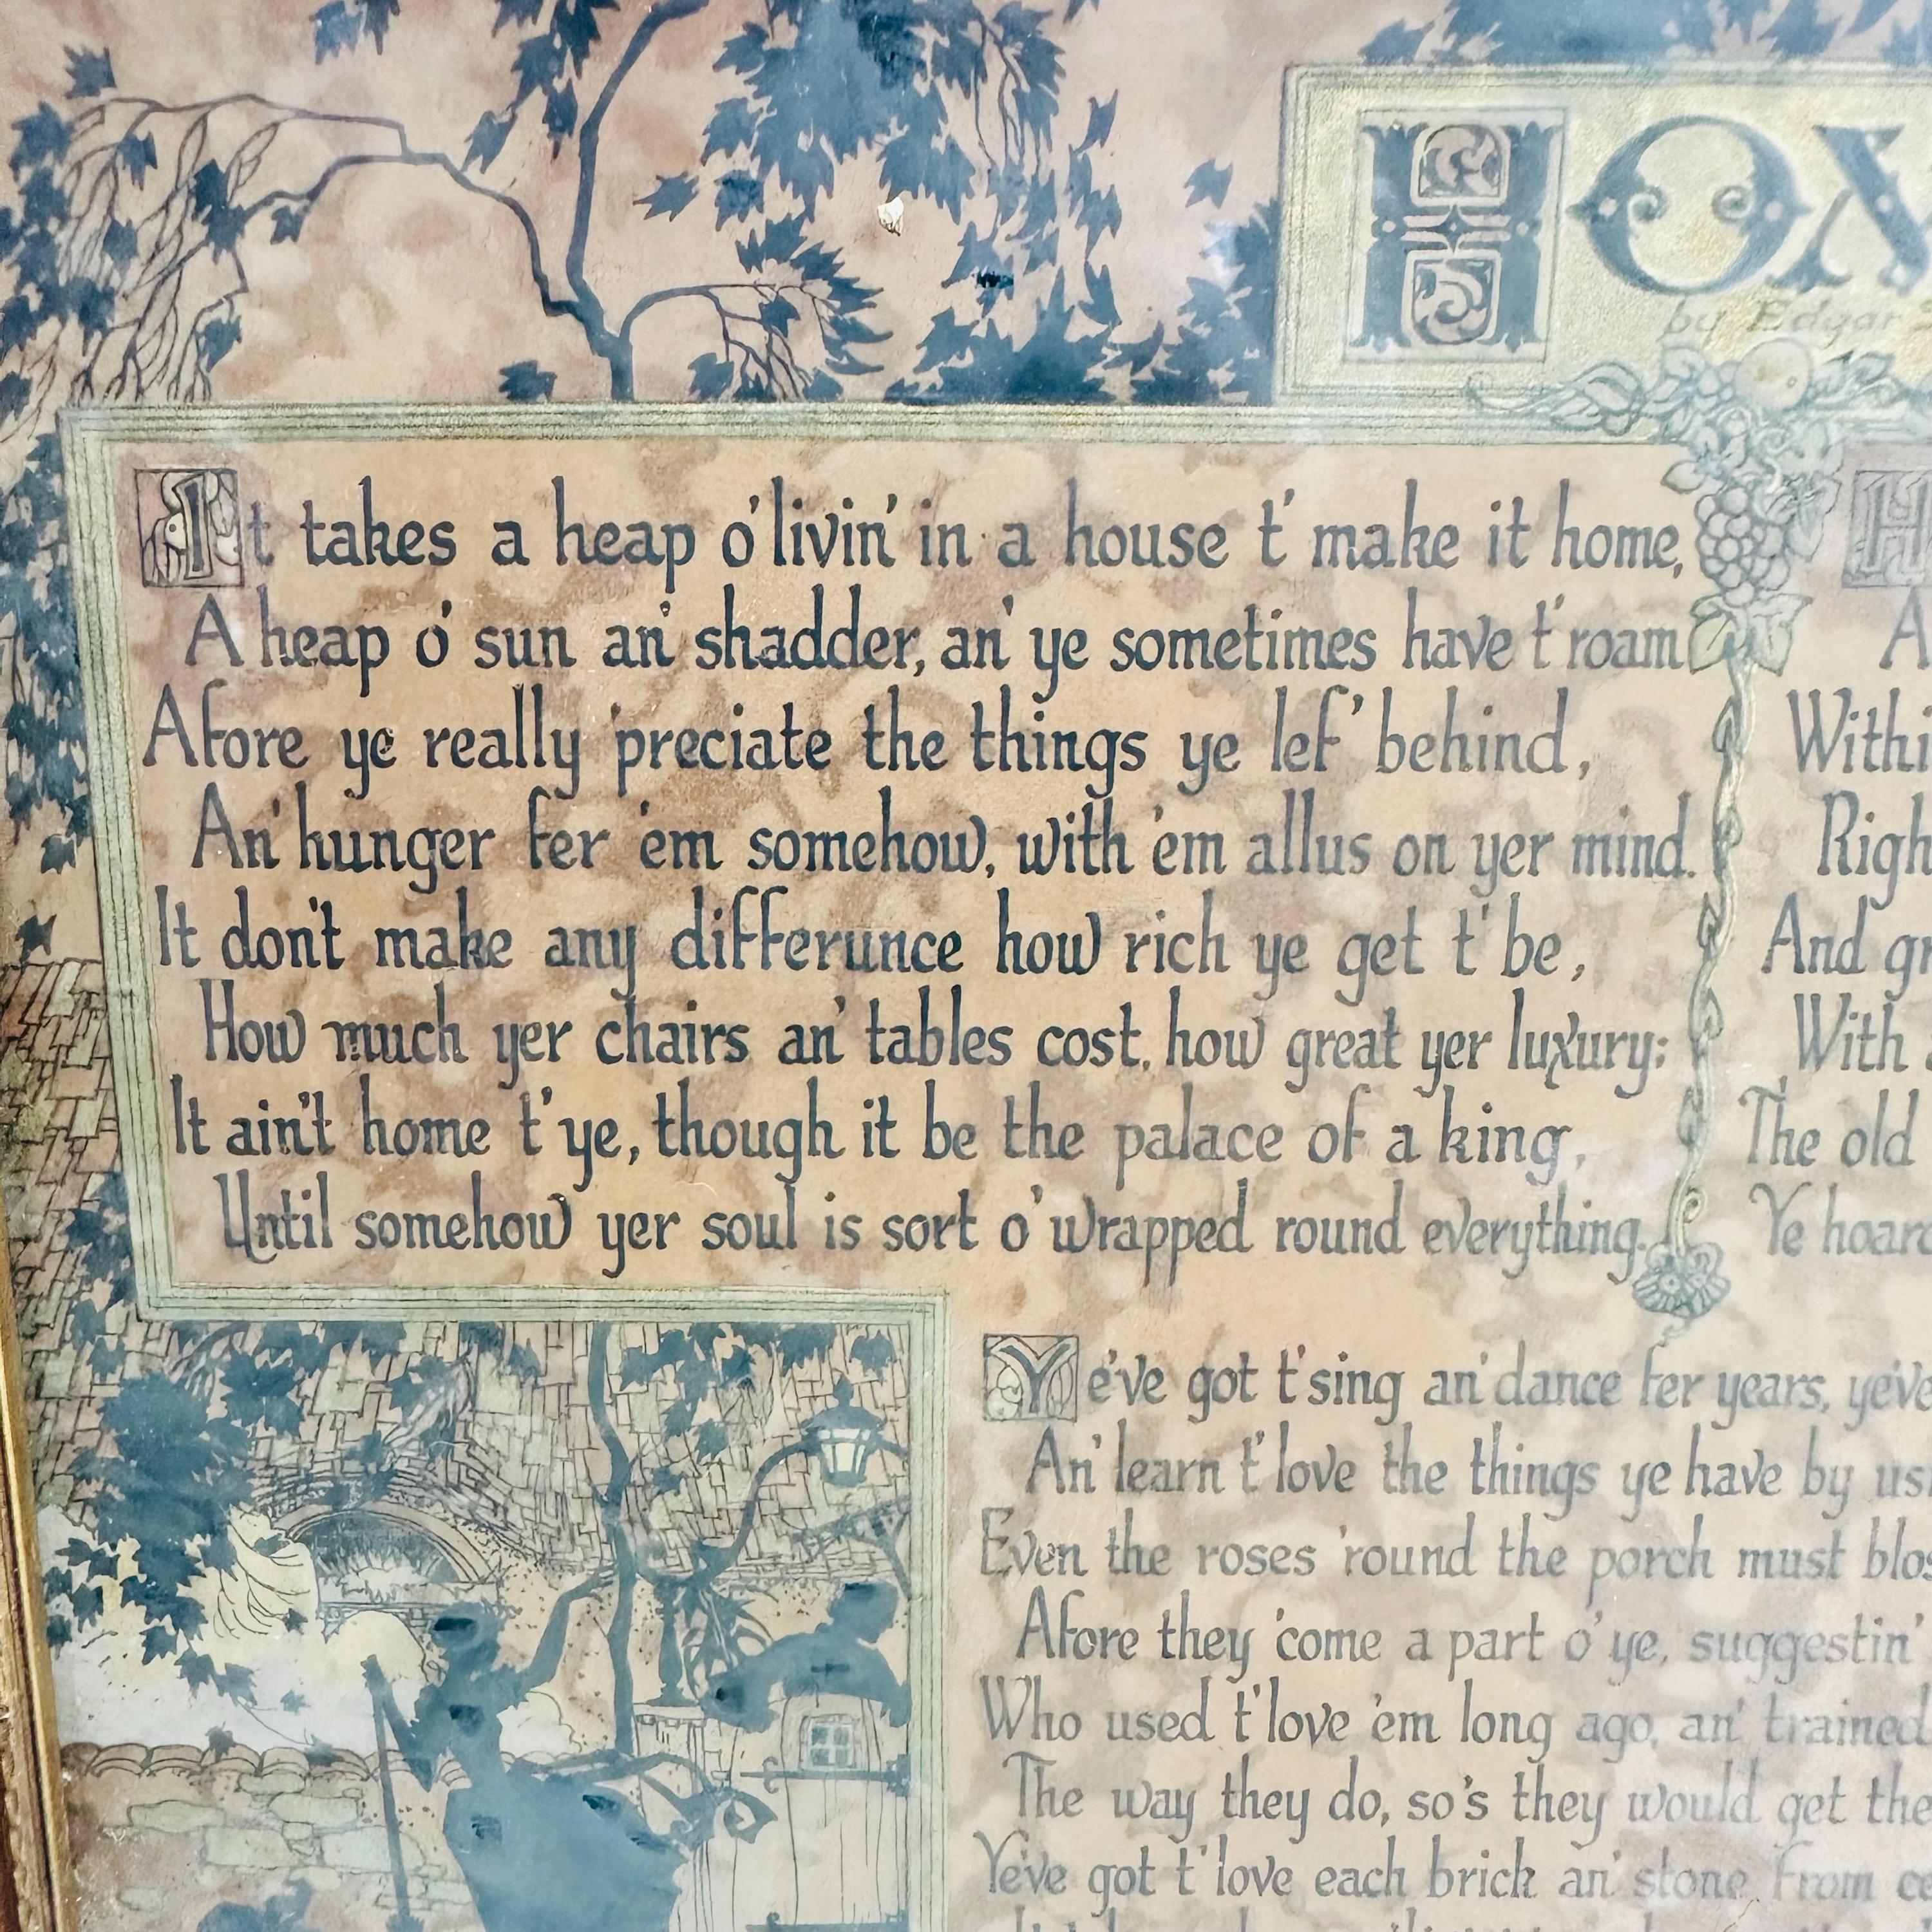 HO
by Edgar
It takes a heap o' livin' in a house t' make it home,
A heap o' sun an' shadder, an' ye sometimes have t' roam
Afore ye really 'preciate the things ye lef' behind,
An' hunger fer 'em somehow, with 'em allus on yer mind.
It don't make any differunce how rich ye get t' be,
How much yer chairs an' tables cost, how great yer luxury;
It ain't home t' ye, though it be the palace of a king,
Until somehow yer soul is sort o' wrapped round everything.
H
A
Withi
Righ
And gr
With
The old
Ye hoard
Ye've got t' sing an' dance fer years, ye've
An' learn t' love the things ye have by usi
Even the roses 'round the porch must blos
Afore they 'come a part o' ye, suggestin'
Who used t' love 'em long ago, an' trained
The way they do, so's they would get the
Ye've got t' love each brick an' stone from ce